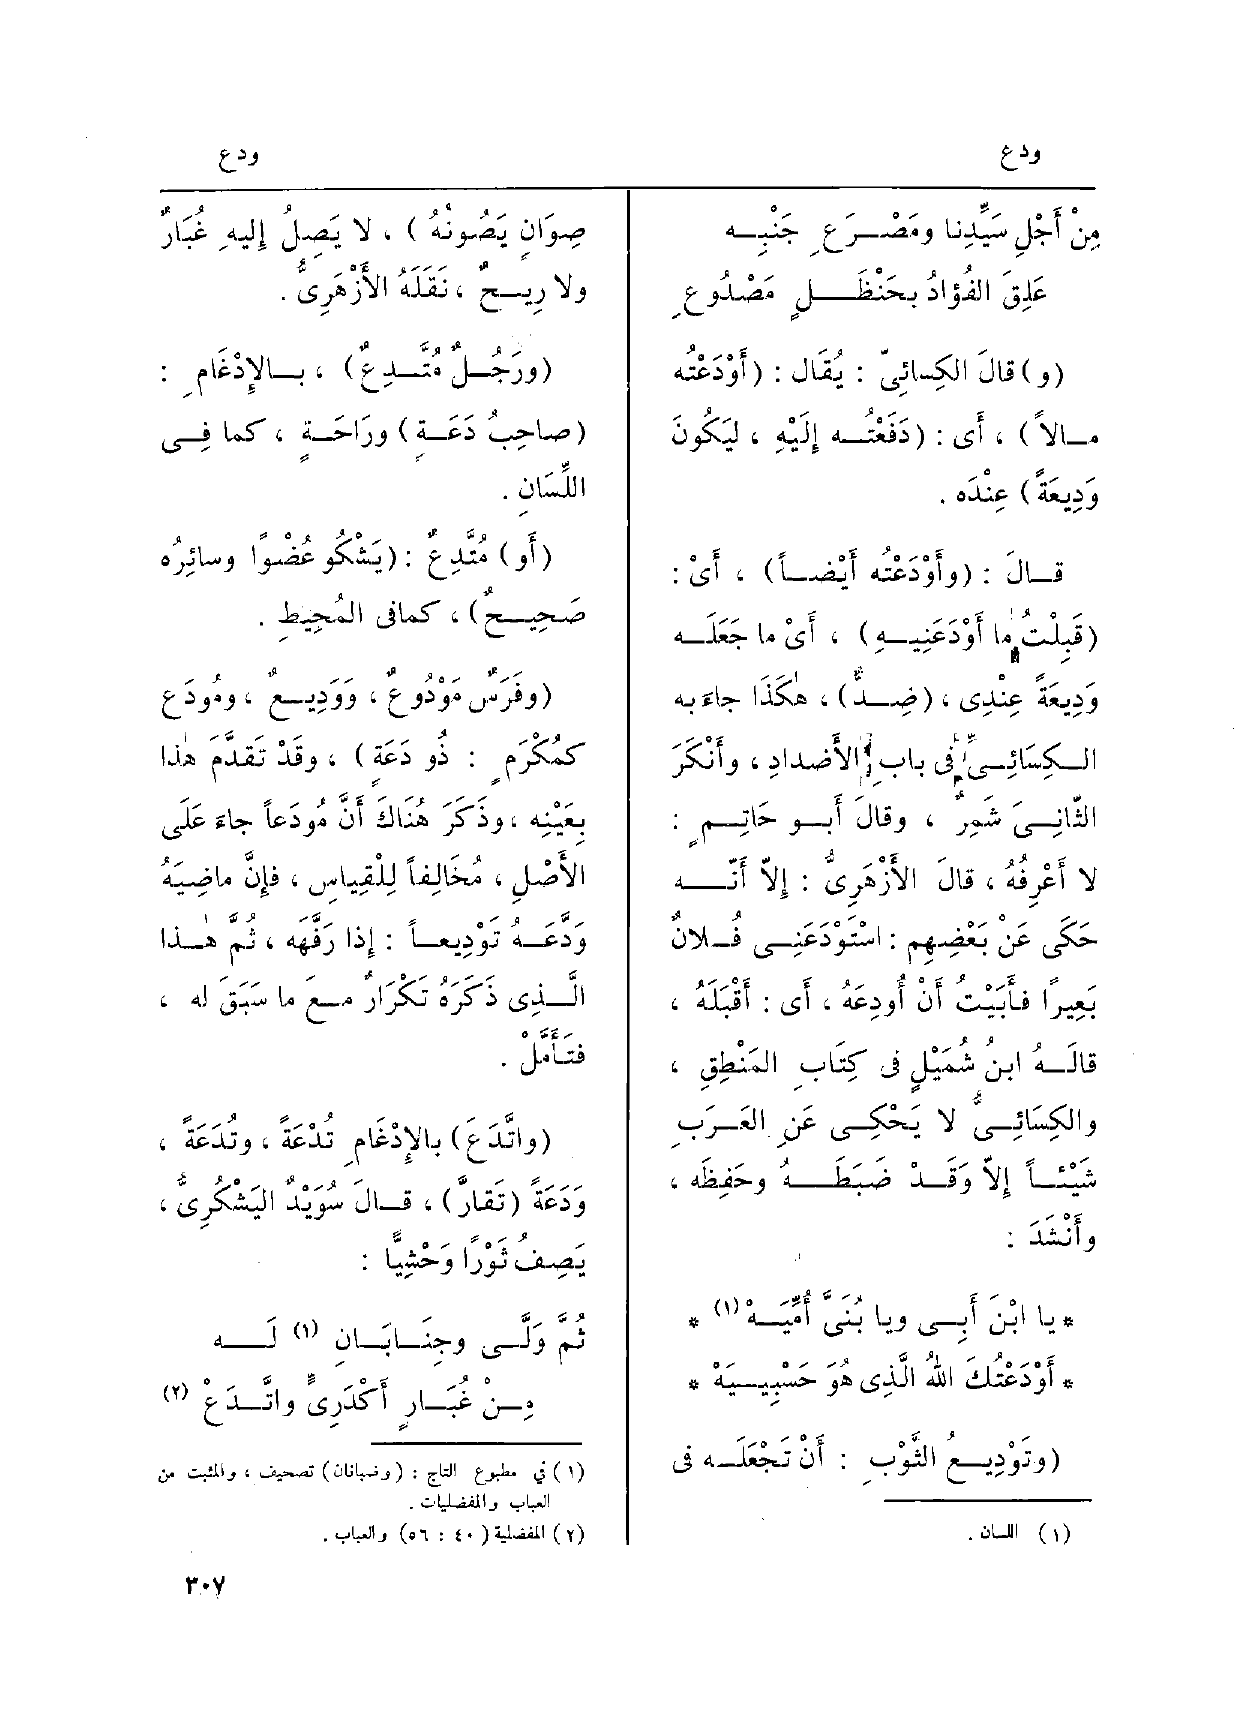 ودع
ودع
مِنْ أَجْلِ سَيِّدِنا ومَصْـرَعِ جَنْبِـه
عَلِقَ الفُؤادُ بحَنْظَـلٍ مَصْدُوعِ
(و) قالَ الكِسائِيّ : يُقَال : (أَوْدَعْتُه
مـالاً) ، أَى : (دَفَعْتُـه إِلَيْهِ ، لِيَكُونَ
وَدِيعَةً) عِنْدَه .
قـالَ : (وأَوْدَعْتُه أَيْضـاً) ، أَىْ :
(قَبِلْتُ ما أَوْدَعَنِيـهِ) ، أَىْ ما جَعَلَـه
وَدِيعَةً عِنْدِى ، (ضِـدٌّ) ، هٰكَذا جاءَ به
الـكِسَائِـىُّ فى بابِ الأَضدادِ ، وأَنْكَرَ
الثّانِـىَ شَمِرٌ ، وقالَ أَبـو حَاتِـمٍ :
لا أَعْرِفُهُ ، قالَ الأَزْهَرِىُّ : إِلاّ أَنَّـه
حَكَى عَنْ بَعْضِهِم : اسْتَوْدَعَنِـى فُـلانٌ
بَعِيرًا فأَبَيْتُ أَنْ أُودِعَهُ ، أَى : أَقْبَلَهُ ،
قالَـهُ ابنُ شُمَيْلٍ فى كِتَابِ المَنْطِقِ ،
والكِسَائِـىُّ لا يَحْكِـى عَنِ العَـرَبِ
شَيْئـاً إِلاّ وَقَـدْ ضَبَطَـهُ وحَفِظَه ،
وأَنْشَدَ :
* يا ابْنَ أَبِـى ويا بُنَىَّ أُمِّيَـهْ (١) *
* أَوْدَعْتُكَ اللهُ الَّذِى هُوَ حَسْبِيَـهْ *
(وتَوْدِيـعُ الثَّوْبِ : أَنْ تَجْعَلَـه فى
(١) اللسان .
صِوَانٍ يَصُونُهُ ) ، لا يَصِلُ إِليهِ غُبَارٌ
ولا رِيـحٌ ، نَقَلَهُ الأَزْهَرِىُّ .
(ورَجُـلٌ مُتَّـدِعٌ) ، بـالإِدْغَامِ :
(صاحِبُ دَعَـةٍ) ورَاحَـةٍ ، كما فِـى
اللِّسَانِ .
(أَو) مُتَّدِعٌ : (يَشْكُو عُضْوًا وسائِرُه
صَحِيـحٌ) ، كمافى المُحِيطِ .
(وفَرَسٌ مَوْدُوعٌ ، ووَدِيـعٌ ، ومُودَع
كمُكْرَمٍ : ذُو دَعَةٍ ) ، وقَدْ تَقَدَّمَ هٰذا
بعَيْنِه ، وذَكَرَ هُنَاكَ أَنَّ مُودَعاً جاءَ عَلَى
الأَصْلِ ، مُخَالِفاً لِلْقِياسِ ، فإِنَّ ماضِيَهُ
وَدَّعَـهُ تَوْدِيعـاً : إِذا رَفَّهه ، ثُمَّ هٰـذا
الَّـذِى ذَكَرَهُ تَكْرَارٌ مـع ما سَبَقَ له ،
فتَـأَمَّلْ .
(واتَّدَعَ) بالإِدْغَامِ تُدْعَةً ، وتُدَعَةً ،
وَدَعَةً (تَقارَّ) ، قـالَ سُوَيْدٌ اليَشْكُرِىُّ ،
يَصِفُ ثَوْرًا وَحْشِيًّا :
ثُمَّ وَلَّـى وجِنَـابَـانِ (١) لَـه
مِـنْ غُبَـارٍ أَكْدَرِىٍّ واتَّـدَعْ (٢)
(١) في مطبوع التاج : (وضبانان) تصحيف ، والمثبت من
العباب والمفضليات .
(٢) المفضلية (٤٠ : ٥٦) والعباب .
٣٠٧